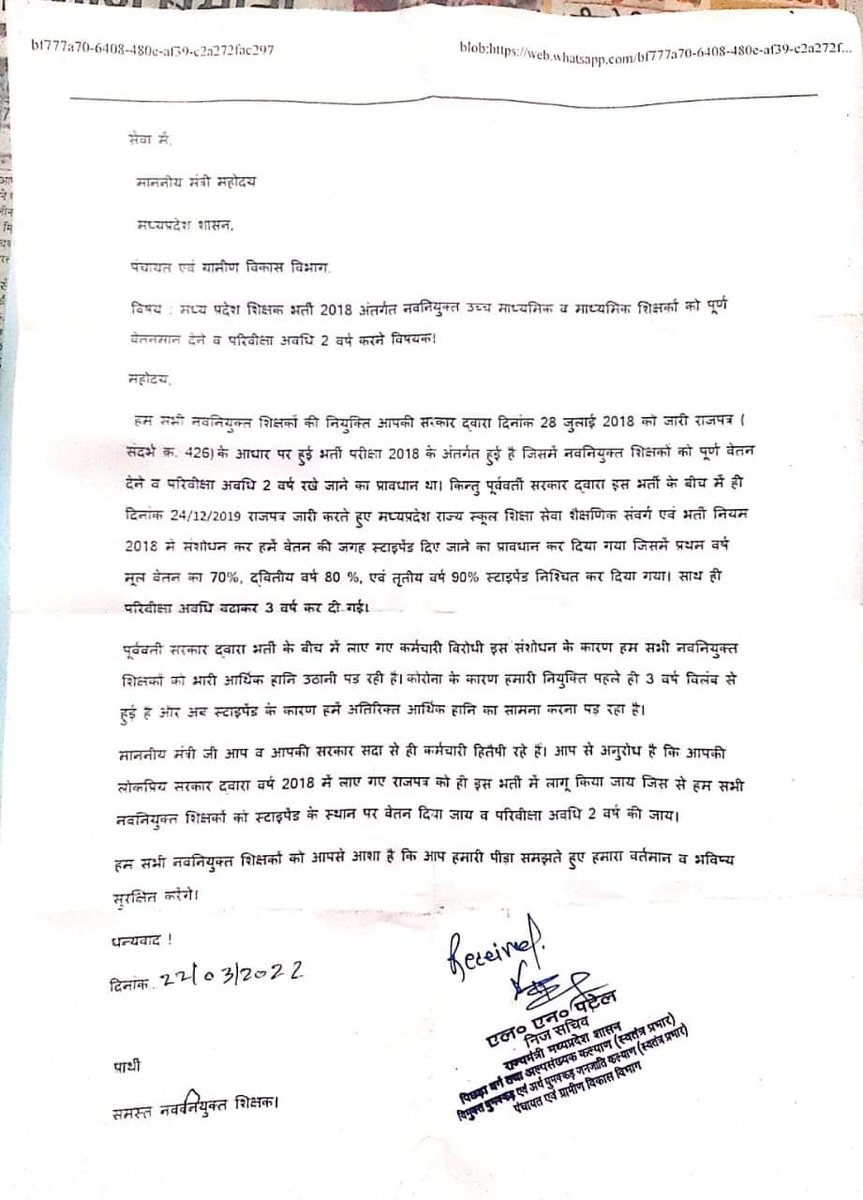 bf777a70-6408-480e-af39-c2a272fac297
blob:https://web.whatsapp.com/bf777a70-6408-480e-af39-c2a272f...
सेवा में,
माननीय मंत्री महोदय
मध्यप्रदेश शासन,
पंचायत एवं ग्रामीण विकास विभाग.
विषय : मध्य प्रदेश शिक्षक भर्ती 2018 अंतर्गत नवनियुक्त उच्च माध्यमिक व माध्यमिक शिक्षकों को पूर्ण
वेतनमान देने व परिवीक्षा अवधि 2 वर्ष करने विषयक।
महोदय,
हम सभी नवनियुक्त शिक्षकों की नियुक्ति आपकी सरकार द्वारा दिनांक 28 जुलाई 2018 को जारी राजपत्र (
संदर्भ क्र. 426) के आधार पर हुई भर्ती परीक्षा 2018 के अंतर्गत हुई है जिसमें नवनियुक्त शिक्षकों को पूर्ण वेतन
देने व परिवीक्षा अवधि 2 वर्ष रखे जाने का प्रावधान था। किन्तु पूर्ववर्ती सरकार द्वारा इस भर्ती के बीच में ही
दिनांक 24/12/2019 राजपत्र जारी करते हुए मध्यप्रदेश राज्य स्कूल शिक्षा सेवा शैक्षणिक संवर्ग एवं भर्ती नियम
2018 में संशोधन कर हमें वेतन की जगह स्टाइपेंड दिए जाने का प्रावधान कर दिया गया जिसमें प्रथम वर्ष
मूल वेतन का 70%, द्वितीय वर्ष 80 %, एवं तृतीय वर्ष 90% स्टाइपेंड निश्चित कर दिया गया। साथ ही
परिवीक्षा अवधि बढाकर 3 वर्ष कर दी गई।
पूर्ववर्ती सरकार द्वारा भर्ती के बीच में लाए गए कर्मचारी विरोधी इस संशोधन के कारण हम सभी नवनियुक्त
शिक्षकों को भारी आर्थिक हानि उठानी पड रही है। कोरोना के कारण हमारी नियुक्ति पहले ही 3 वर्ष विलंब से
हुई है और अब स्टाइपेंड के कारण हमें अतिरिक्त आर्थिक हानि का सामना करना पड़ रहा है।
माननीय मंत्री जी आप व आपकी सरकार सदा से ही कर्मचारी हितैषी रहे हैं। आप से अनुरोध है कि आपकी
लोकप्रिय सरकार द्वारा वर्ष 2018 में लाए गए राजपत्र को ही इस भर्ती में लागू किया जाय जिस से हम सभी
नवनियुक्त शिक्षकों को स्टाइपेंड के स्थान पर वेतन दिया जाय व परिवीक्षा अवधि 2 वर्ष की जाय।
हम सभी नवनियुक्त शिक्षकों को आपसे आशा है कि आप हमारी पीड़ा समझते हुए हमारा वर्तमान व भविष्य
सुरक्षित करेंगे।
धन्यवाद !
दिनांक. 22/03/2022
Received.
एल० एन० पटेल
निज सचिव
राज्यमंत्री मध्यप्रदेश शासन
पिछड़ा वर्ग तथा अल्पसंख्यक कल्याण (स्वतंत्र प्रभार)
विमुक्त घुमक्कड़ एवं अर्ध घुमक्कड़ जनजाति कल्याण (स्वतंत्र प्रभार)
पंचायत एवं ग्रामीण विकास विभाग
प्रार्थी
समस्त नवनियुक्त शिक्षक।